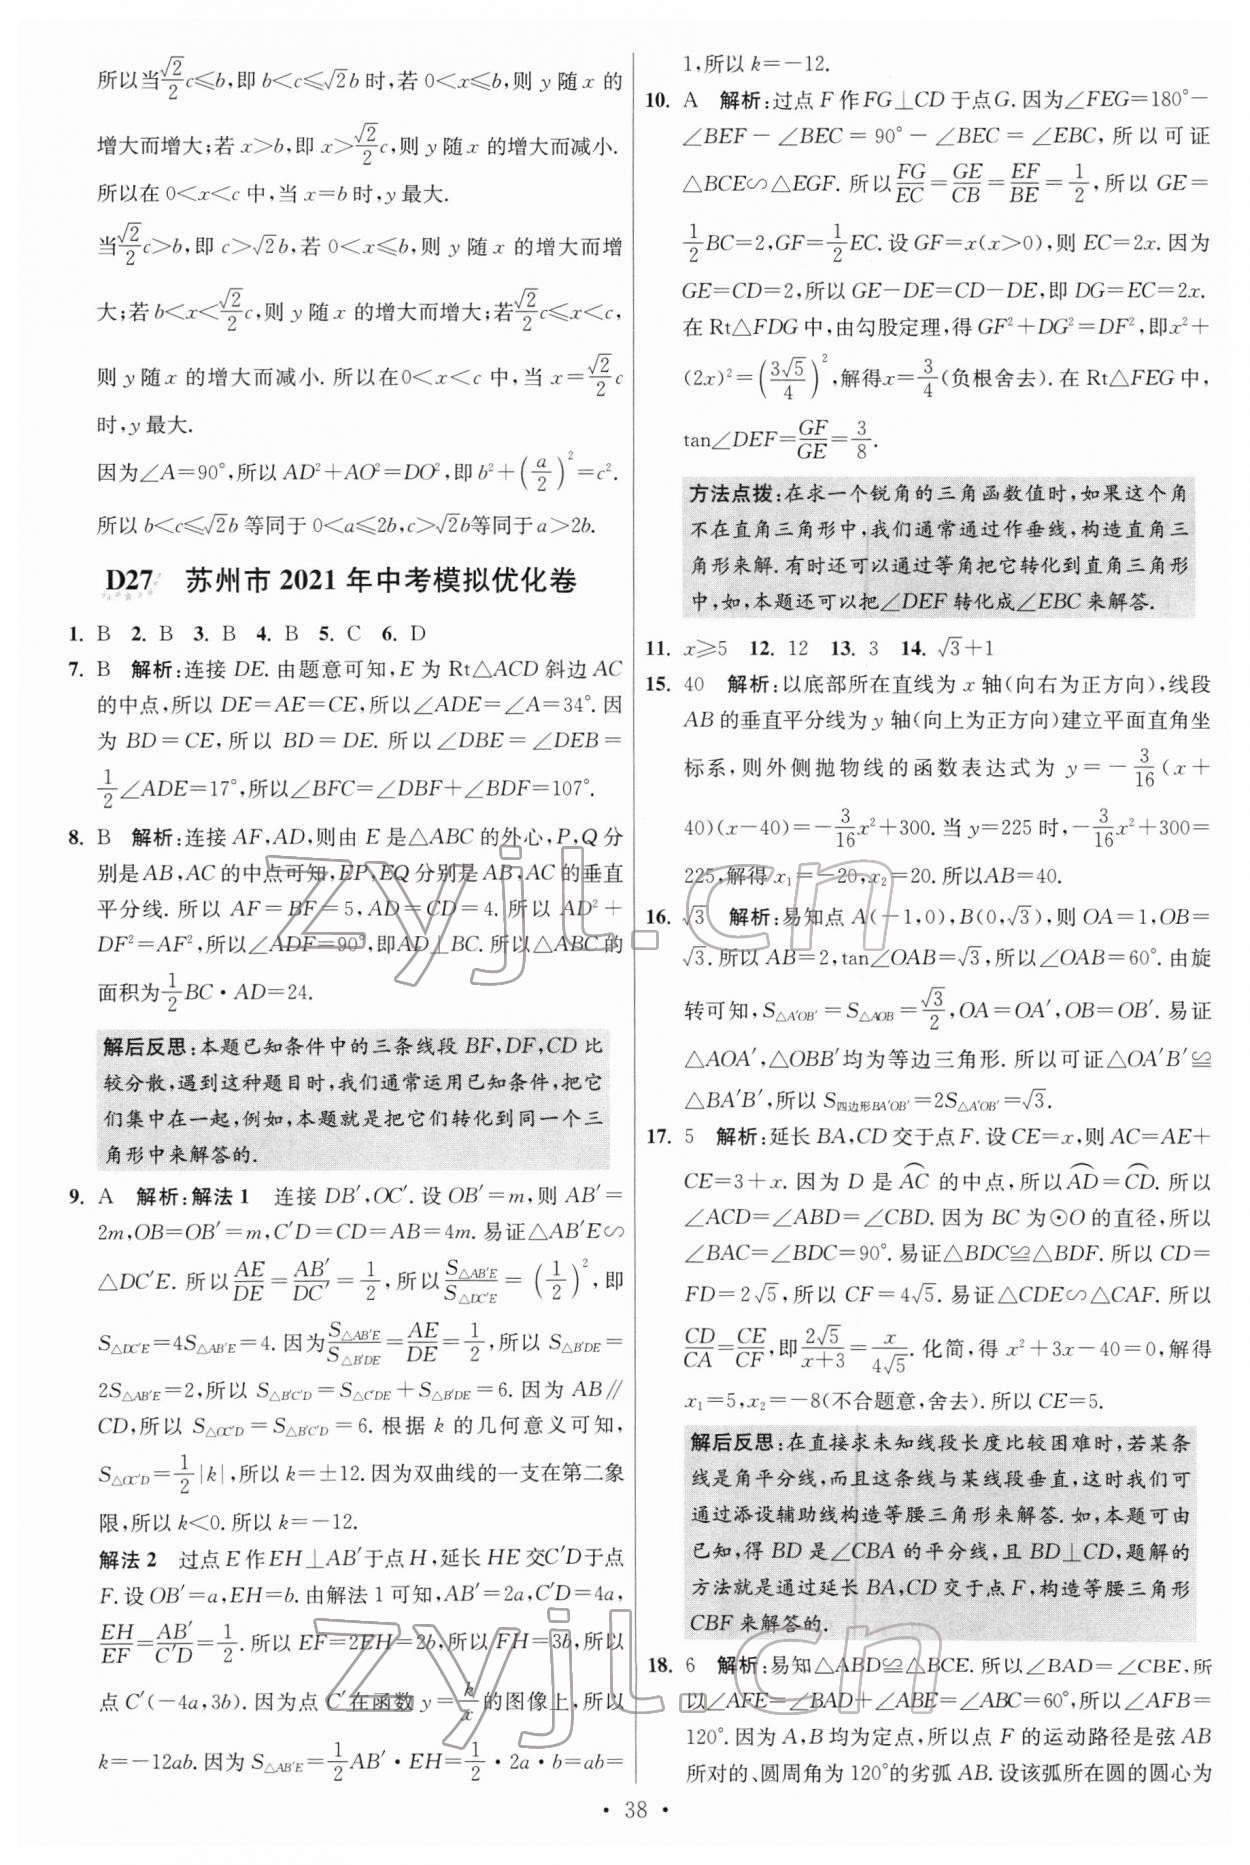 所以当√2/2c≤b,即b<c≤√2b时,若0<x≤b,则y随x的
增大而增大;若x>b,即x>√2/2c,则y随x的增大而减小.
所以在0<x<c中,当x=b时,y最大.
当√2/2c>b,即c>√2b,若0<x≤b,则y随x的增大而增
大;若b<x<√2/2c,则y随x的增大而增大;若√2/2c≤x<c,
则y随x的增大而减小.所以在0<x<c中,当x=√2/2c
时,y最大.
因为∠A=90°,所以AD²+AO²=DO²,即b²+(a/2)²=c².
所以b<c≤√2b等同于0<a≤2b,c>√2b等同于a>2b.
D27 苏州市2021年中考模拟优化卷
1. B 2. B 3. B 4. B 5. C 6. D
7. B 解析:连接DE.由题意可知,E为Rt△ACD斜边AC
的中点,所以DE=AE=CE,所以∠ADE=∠A=34°.因
为BD=CE,所以BD=DE.所以∠DBE=∠DEB=
1/2∠ADE=17°,所以∠BFC=∠DBF+∠BDF=107°.
8. B 解析:连接AF,AD,则由E是△ABC的外心,P,Q分
别是AB,AC的中点可知,EP,EQ分别是AB,AC的垂直
平分线.所以AF=BF=5,AD=CD=4.所以AD²+
DF²=AF²,所以∠ADF=90°,即AD⊥BC.所以△ABC的
面积为1/2BC·AD=24.
解后反思:本题已知条件中的三条线段BF,DF,CD比
较分散,遇到这种题目时,我们通常运用已知条件,把它
们集中在一起,例如,本题就是把它们转化到同一个三
角形中来解答的.
9. A 解析:解法1 连接DB′,OC′.设OB′=m,则AB′=
2m,OB=OB′=m,C′D=CD=AB=4m.易证△AB′E∽
△DC′E.所以AE/DE=AB′/DC′=1/2,所以S△AB′E/S△DC′E=(1/2)²,即
S△DC′E=4S△AB′E=4.因为S△AB′E/S△B′DE=AE/DE=1/2,所以S△B′DE=
2S△AB′E=2,所以S△B′C′D=S△C′DE+S△B′DE=6.因为AB∥
CD,所以S△OC′D=S△B′C′D=6.根据k的几何意义可知,
S△OC′D=1/2|k|,所以k=±12.因为双曲线的一支在第二象
限,所以k<0.所以k=-12.
解法2 过点E作EH⊥AB′于点H,延长HE交C′D于点
F.设OB′=a,EH=b.由解法1可知,AB′=2a,C′D=4a,
EH/EF=AB′/C′D=1/2.所以EF=2EH=2b,所以FH=3b,所以
点C′(-4a,3b).因为点C′在函数y=k/x的图像上,所以
k=-12ab.因为S△AB′E=1/2AB′·EH=1/2·2a·b=ab=
1,所以k=-12.
10. A 解析:过点F作FG⊥CD于点G.因为∠FEG=180°-
∠BEF-∠BEC=90°-∠BEC=∠EBC,所以可证
△BCE∽△EGF.所以FG/EC=GE/CB=EF/BE=1/2,所以GE=
1/2BC=2,GF=1/2EC.设GF=x(x>0),则EC=2x.因为
GE=CD=2,所以GE-DE=CD-DE,即DG=EC=2x.
在Rt△FDG中,由勾股定理,得GF²+DG²=DF²,即x²+
(2x)²=(3√5/4)²,解得x=3/4(负根舍去).在Rt△FEG中,
tan∠DEF=GF/GE=3/8.
方法点拨:在求一个锐角的三角函数值时,如果这个角
不在直角三角形中,我们通常通过作垂线,构造直角三
角形来解.有时还可以通过等角把它转化到直角三角形
中,如,本题还可以把∠DEF转化成∠EBC来解答.
11. x≥5 12. 12 13. 3 14. √3+1
15. 40 解析:以底部所在直线为x轴(向右为正方向),线段
AB的垂直平分线为y轴(向上为正方向)建立平面直角坐
标系,则外侧抛物线的函数表达式为y=-3/16(x+
40)(x-40)=-3/16x²+300.当y=225时,-3/16x²+300=
225,解得x₁=-20,x₂=20.所以AB=40.
16. √3 解析:易知点A(-1,0),B(0,√3),则OA=1,OB=
√3.所以AB=2,tan∠OAB=√3,所以∠OAB=60°.由旋
转可知,S△A′OB′=S△AOB=√3/2,OA=OA′,OB=OB′.易证
△AOA′,△OBB′均为等边三角形.所以可证△OA′B′≌
△BA′B′,所以S四边形BA′OB′=2S△A′OB′=√3.
17. 5 解析:延长BA,CD交于点F.设CE=x,则AC=AE+
CE=3+x.因为D是⌒AC的中点,所以⌒AD=⌒CD.所以
∠ACD=∠ABD=∠CBD.因为BC为⊙O的直径,所以
∠BAC=∠BDC=90°.易证△BDC≌△BDF.所以CD=
FD=2√5,所以CF=4√5.易证△CDE∽△CAF.所以
CD/CA=CE/CF,即2√5/(x+3)=x/4√5.化简,得x²+3x-40=0,解得
x₁=5,x₂=-8(不合题意,舍去).所以CE=5.
解后反思:在直接求未知线段长度比较困难时,若某条
线是角平分线,而且这条线与某线段垂直,这时我们可
通过添设辅助线构造等腰三角形来解答.如,本题可由
已知,得BD是∠CBA的平分线,且BD⊥CD,题解的
方法就是通过延长BA,CD交于点F,构造等腰三角形
CBF来解答的.
18. 6 解析:易知△ABD≌△BCE.所以∠BAD=∠CBE,所
以∠AFE=∠BAD+∠ABE=∠ABC=60°,所以∠AFB=
120°.因为A,B均为定点,所以点F的运动路径是弦AB
所对的、圆周角为120°的劣弧AB.设该弧所在圆的圆心为
· 38 ·
zyjl.cn
zyjl.cn